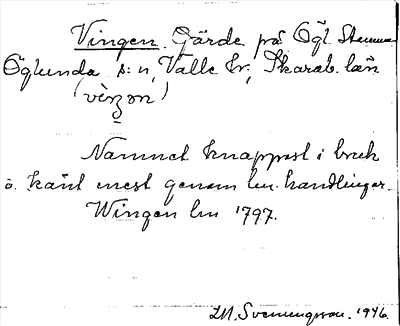 Vingen. Gärde på Ögl. Stumma
Öglunda s:n, Valle hr, Skarab. län
Namnet knappast i bruk
o. känt mest genom lm. handlingar.
Wingen lm 1797.
LM. Svenungsson. 1946.